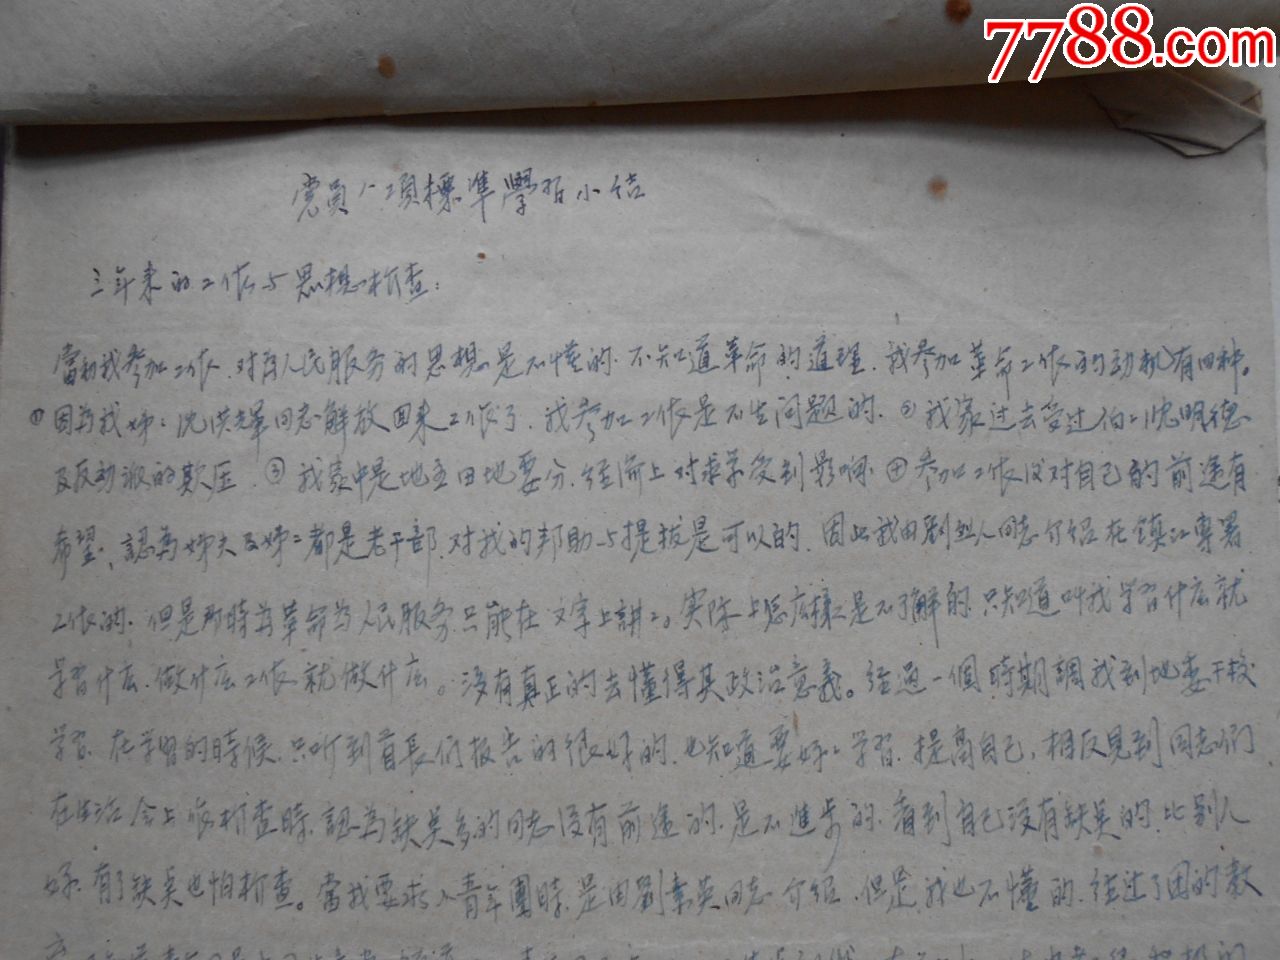 7788.com
党員八項標準學習小结
三年来的工作与思想檢查:
當初我参加工作、对为人民服务的思想是不懂的、不知道革命的道理、我参加革命工作的动机有四种。
①因为我姊:沈洪 同志解放回来工作了、我参加工作是不生问题的、②我家过去受过伯:沈明德
及反动派的欺压、③我家中是地主田地要分、经济上对求学受到影响④参加工作仅对自己的前途有
希望、認為姊夫及姊:都是老干部、对我的邦助与提拔是可以的、因此我由劉 人同志介绍在镇江專署
工作的、但是那時为革命为人民服务只能在文字上講:。实际上怎么样是不了解的、只知道叫我学習什么就
学習什么、做什么工作就做什么。没有真正的去懂得其政治意義。经过一個時期調我到地委干校
学習、在学習的時候、只听到首長们报告的很好的、也知道要好:学習、提高自己、相反見到同志们
在生活会上作檢查時、認為缺点多的同志没有前途的、是不進步的、看到自己没有缺点的、比别人
好、有了缺点也怕檢查。當我要求入青年團時、是由劉 英同志介绍、但是我也不懂的、经过了团的教